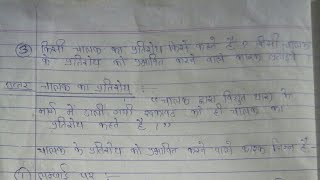 ③ किसी चालक का प्रतिरोध किसे कहते हैं ? किसी चालक
के प्रतिरोध को प्रभावित करने वाले कारक
उत्तर चालक का प्रतिरोध :-
" चालक द्वारा विद्युत धारा के
मार्ग में डाली गयी रुकावट को ही चालक का
प्रतिरोध कहते हैं । "
चालक के प्रतिरोध को प्रभावित करने वाले कारक निम्न हैं -
① लम्बाई पर :-